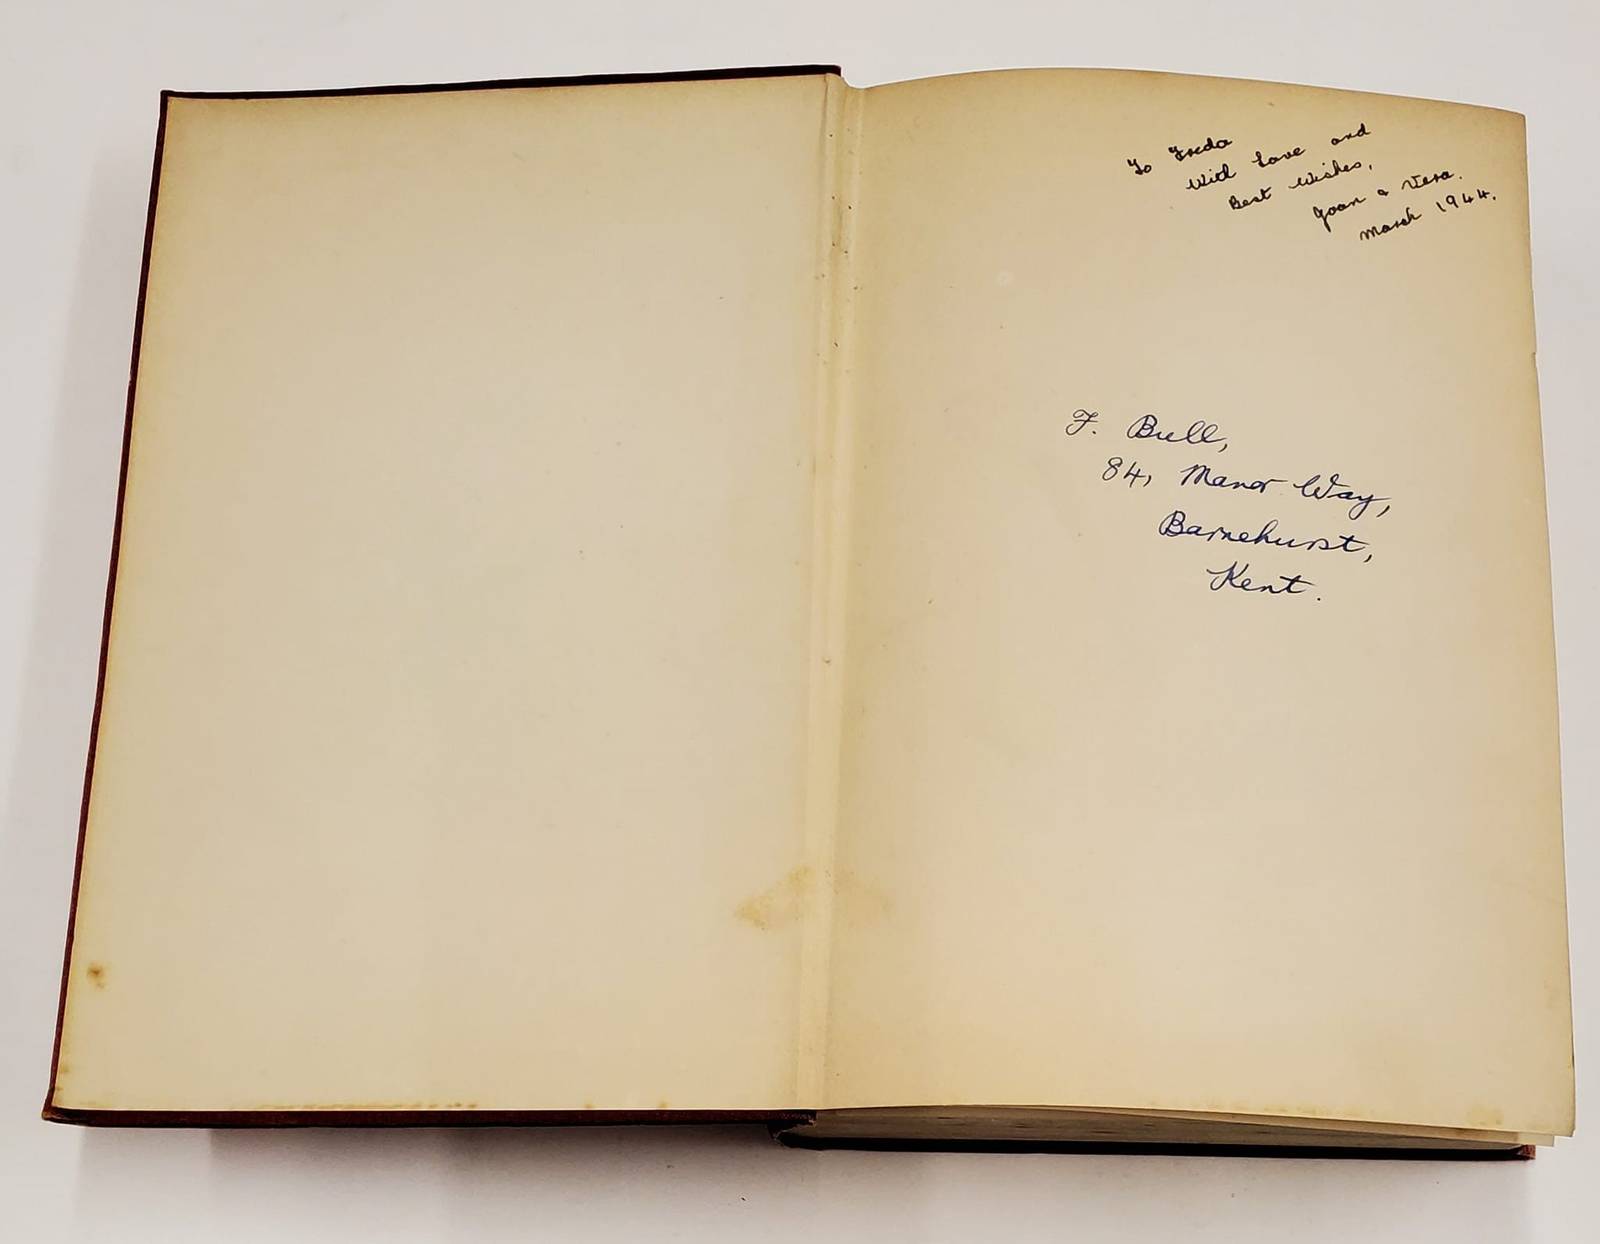 To Freda
With Love and
Best Wishes,
Joan & Vera.
March 1944.
F. Bull,
84, Manor Way,
Barnehurst,
Kent.